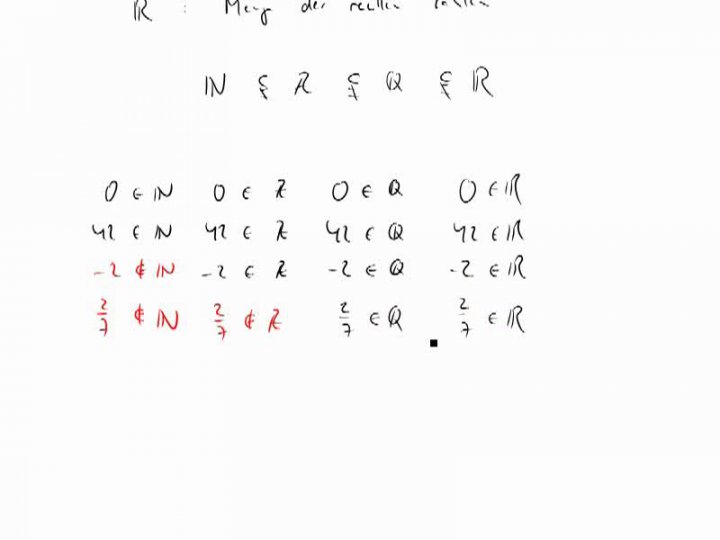 ℝ : Menge der reellen Zahlen
ℕ ⊊ ℤ ⊊ ℚ ⊊ ℝ
0 ∈ ℕ 0 ∈ ℤ 0 ∈ ℚ 0 ∈ ℝ
42 ∈ ℕ 42 ∈ ℤ 42 ∈ ℚ 42 ∈ ℝ
-2 ∉ ℕ -2 ∈ ℤ -2 ∈ ℚ -2 ∈ ℝ
2/7 ∉ ℕ 2/7 ∉ ℤ 2/7 ∈ ℚ 2/7 ∈ ℝ